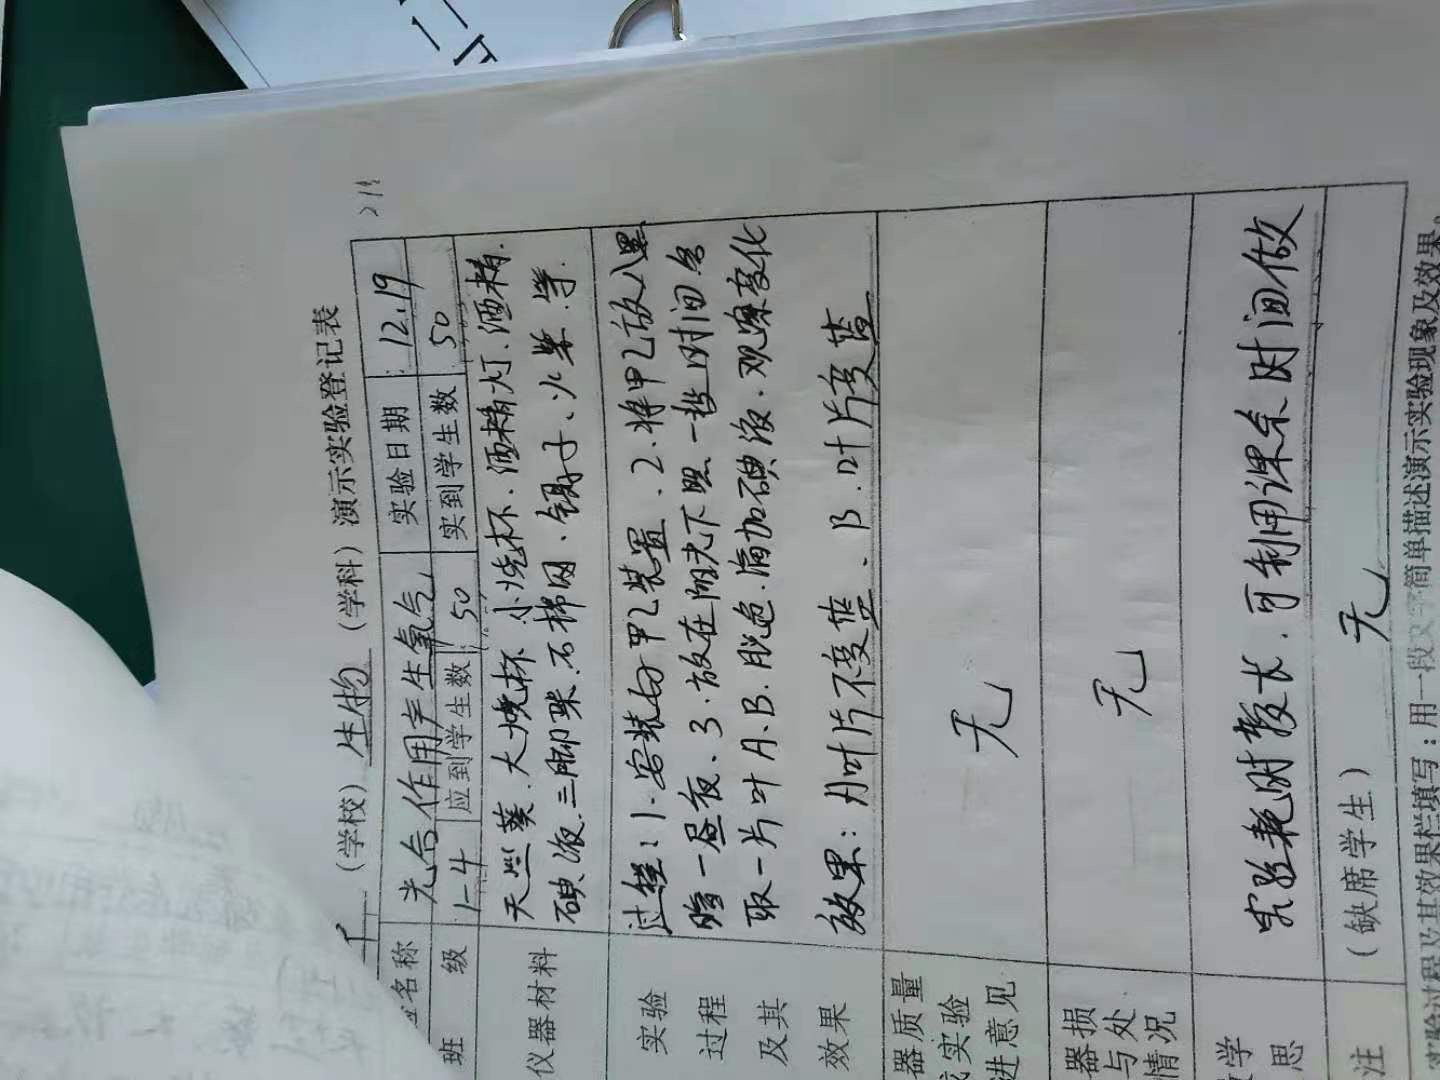 （学校）生物（学科）演示实验登记表
名称 光合作用产生氧气 实验日期 12.19
班级 1-4 应到学生数 50 实到学生数 50
仪器材料 天竺葵、大烧杯、小烧杯、酒精灯、酒精、
碘液、三脚架、石棉网、镊子、火柴、等.
实验过程及其效果
过程：1.安装好甲乙装置、2.将甲乙放入黑
暗一昼夜、3.放在阳光下照一些时间各
取一片叶A.B.脱色.滴加碘液.观察变化
效果：A叶片不变蓝、B.叶片变蓝
器质量
实验
进意见 无
器损
与处
情况 无
学
思 实验耗时较长.可利用课余时间做
注 （缺席学生） 无
实验过程及其效果栏填写：用一段文字简单描述演示实验现象及效果。